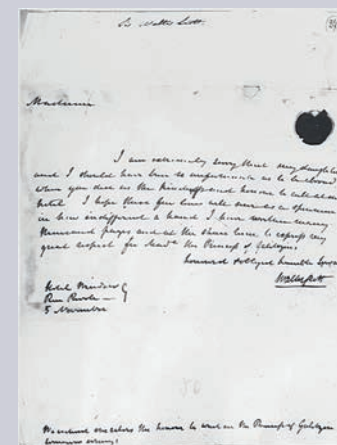 Sir Walter Scott.
Madame
I am extremely sorry that my daughter
and I should have been so unfortunate as to be abroad
when you did us the kindness and honour to call at our
hotel I hope these few lines will serve as a specimen
in how indifferent a hand I have written many
thousand pages and at the same time to express my
great respect for Made the Princess of Galitzin
honourd & obliged humble
Walter Scott
Hotel Windsor
Rue Rivoli
5 November
We intend ourselves the honour to wait on the Princess of Galitzin
tomorrow evening